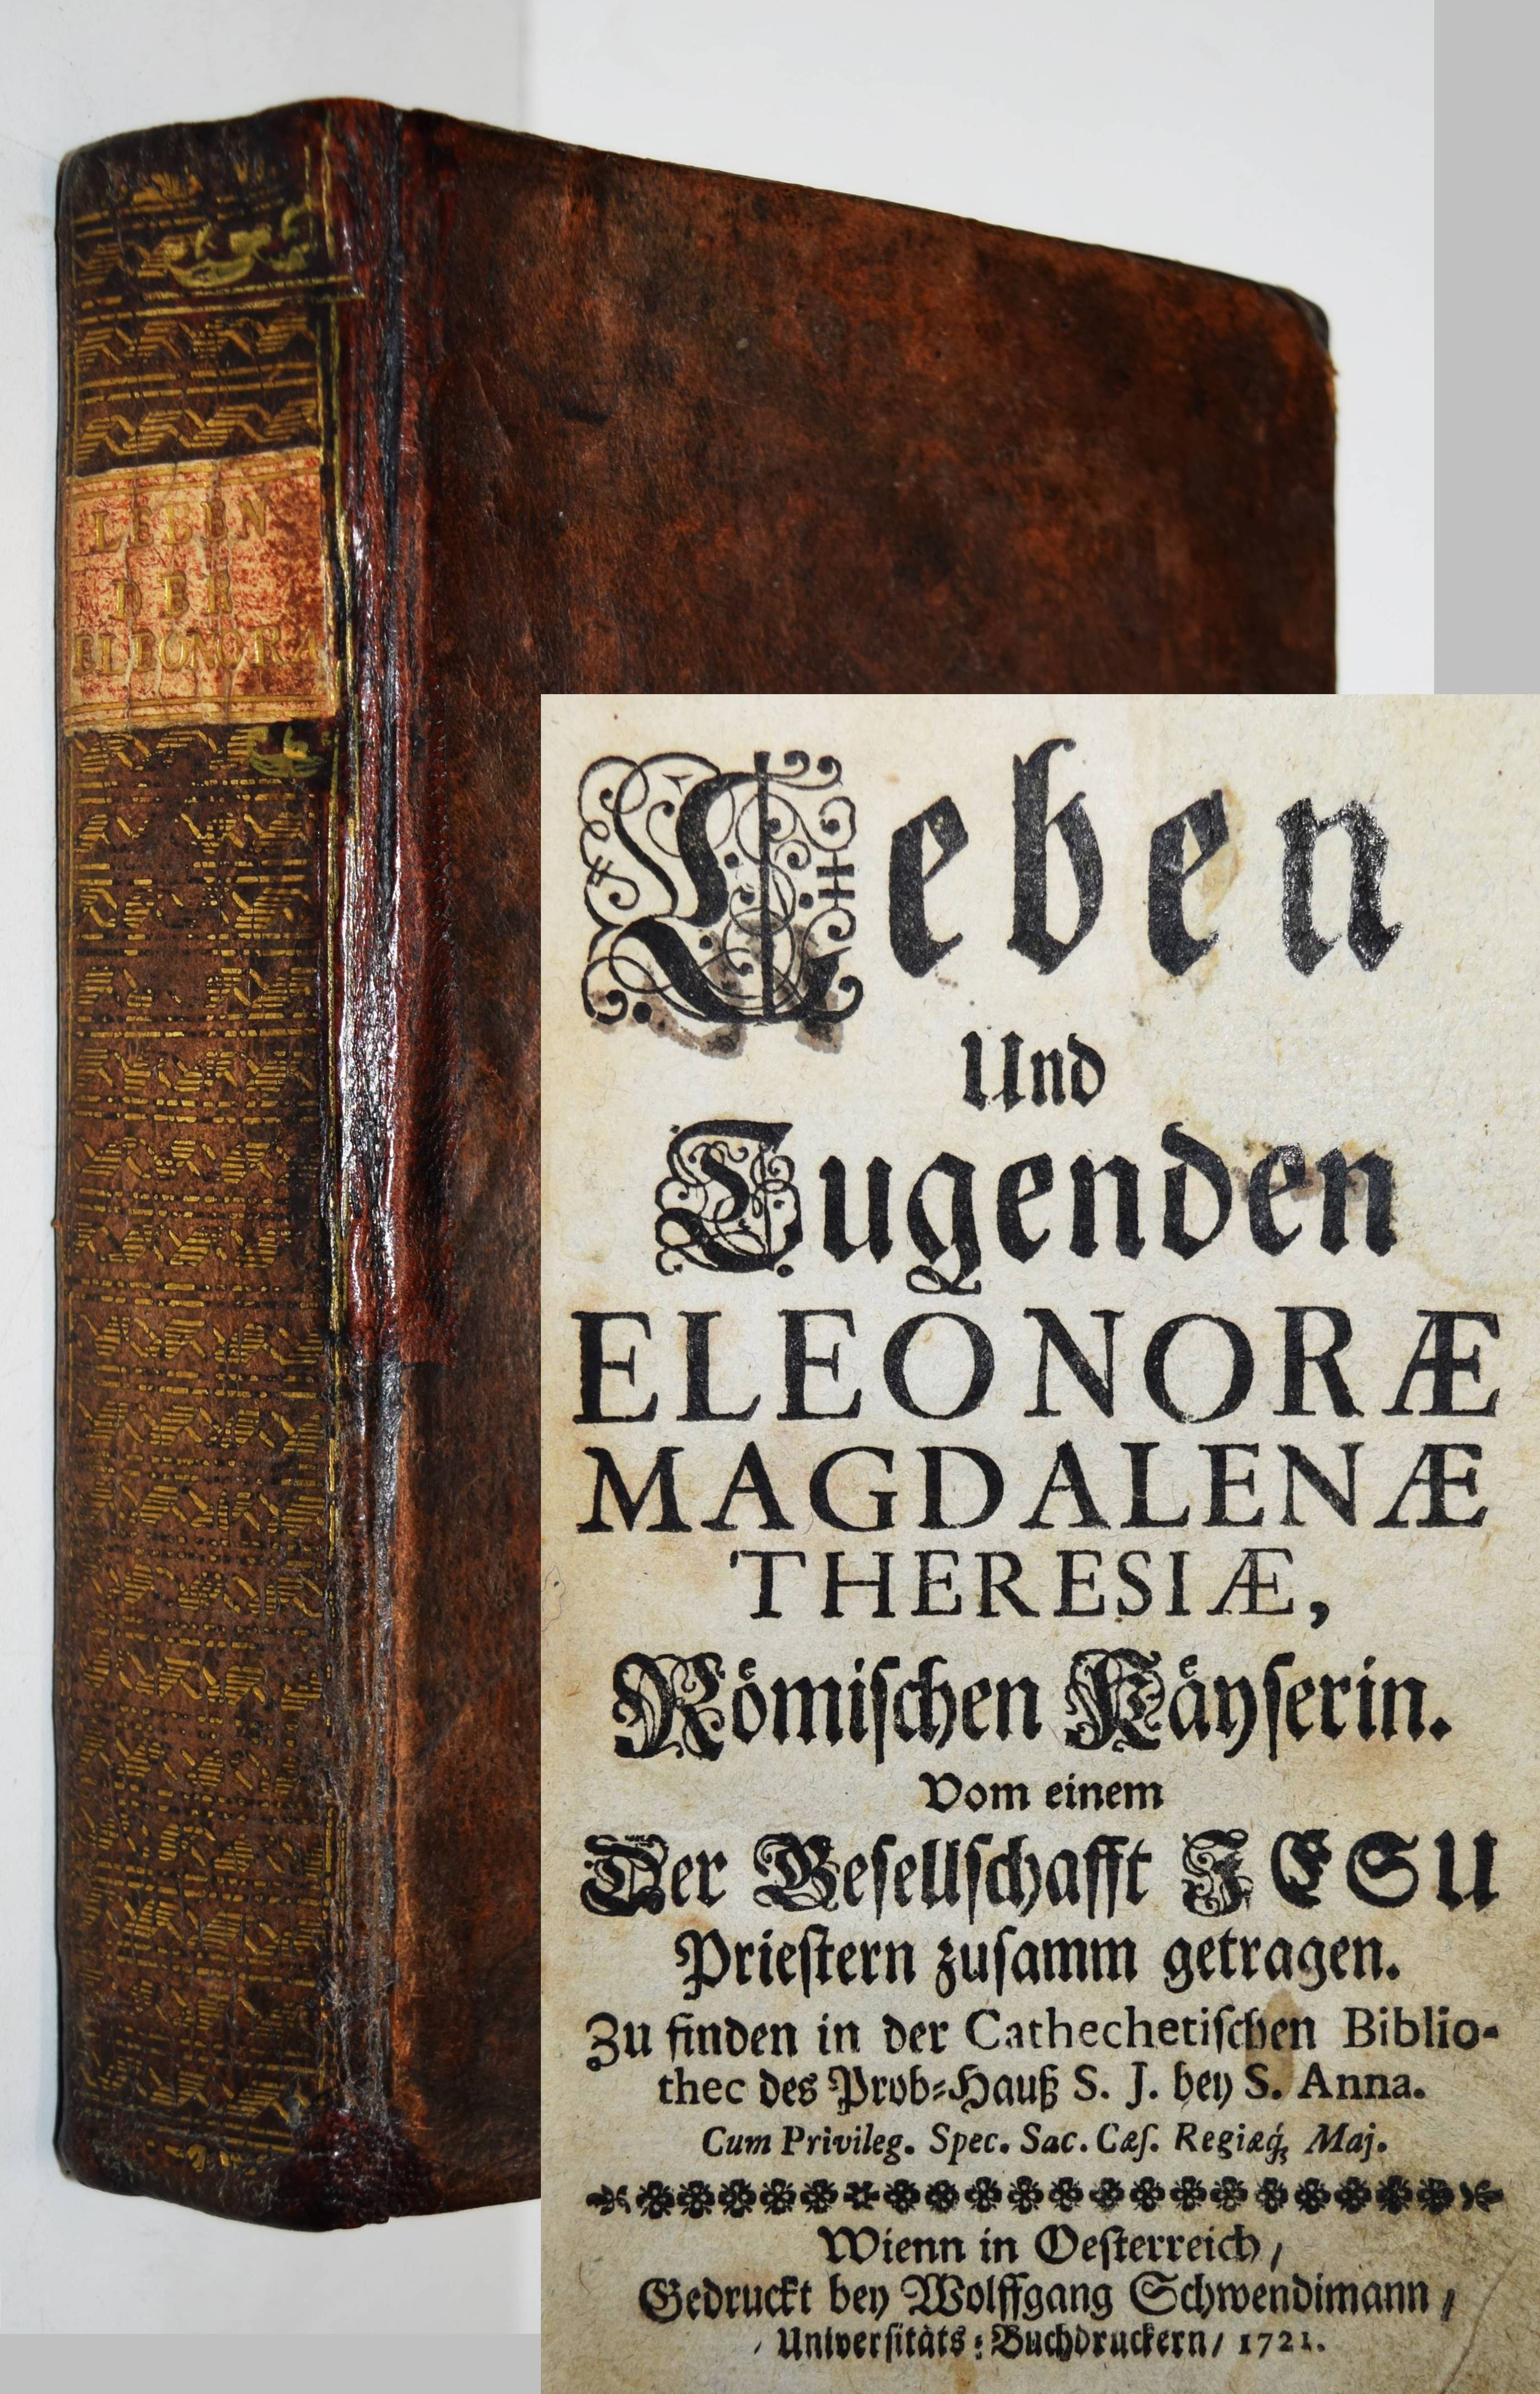 LEBEN
DER
ELEONORA
Leben
Und
Tugenden
ELEONORÆ
MAGDALENÆ
THERESIÆ,
Römischen Käyserin.
Vom einem
Der Gesellschafft JESU
Priestern zusamm getragen.
Zu finden in der Cathechetischen Biblio-
thec des Prob-Hauß S. J. bey S. Anna.
Cum Privileg. Spec. Sac. Cæs. Regiæq́; Maj.
Wienn in Oesterreich/
Gedruckt bey Wolffgang Schwendimann/
Universitäts-Buchdruckern/ 1721.